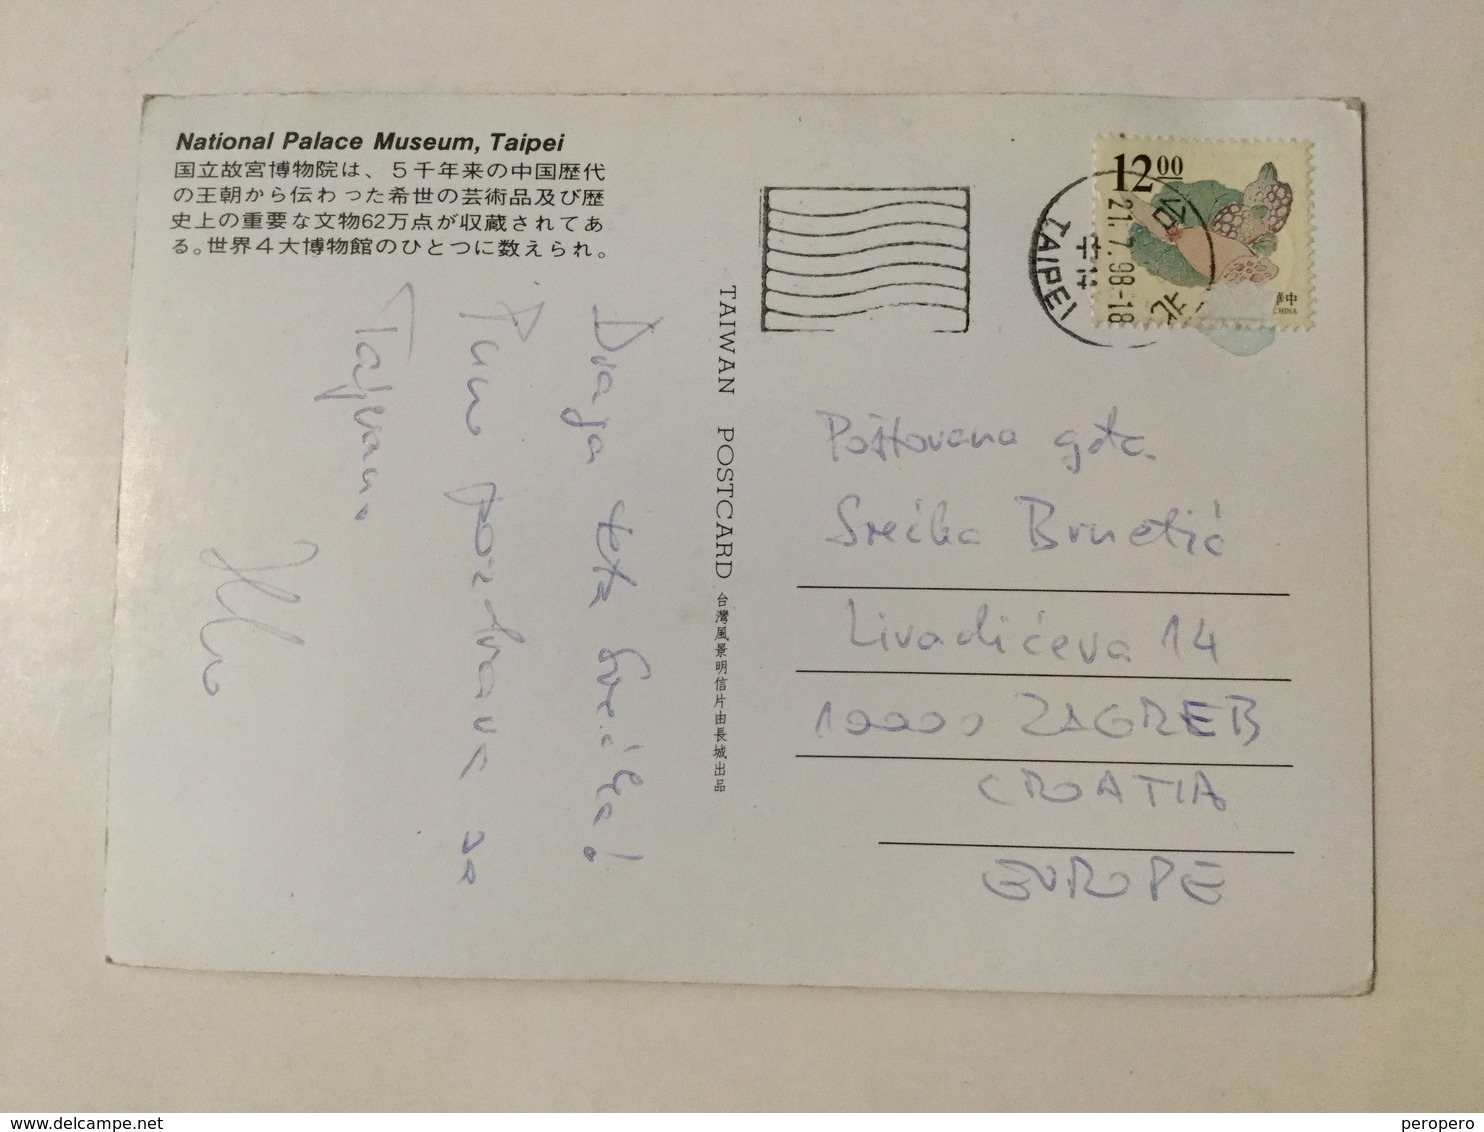 National Palace Museum, Taipei
国立故宮博物院は、5千年来の中国歴代
の王朝から伝わった希世の芸術品及び歴
史上の重要な文物62万点が収蔵されてあ
る。世界4大博物館のひとつに数えられ。
Draga teta Srećka!
Puno pozdrava sa
Tajvana
TAIWAN POSTCARD 台灣風景明信片由長城出品
12 00
中華
CHINA
台北
21.7.98-18
TAIPEI
Poštovana gđa.
Srećka Brnetić
Livadićeva 14
10000 ZAGREB
CROATIA
EUROPE
www.delcampe.net
peropero